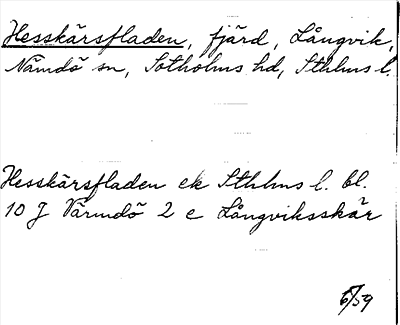 Hesskärsfladen, fjärd, Långvik,
Nämdö sn, Sotholms hd, Sthlms l.
Hesskärsfladen ek Sthlms l. bl.
10 J Värmdö 2 e Långviksskär
6/59